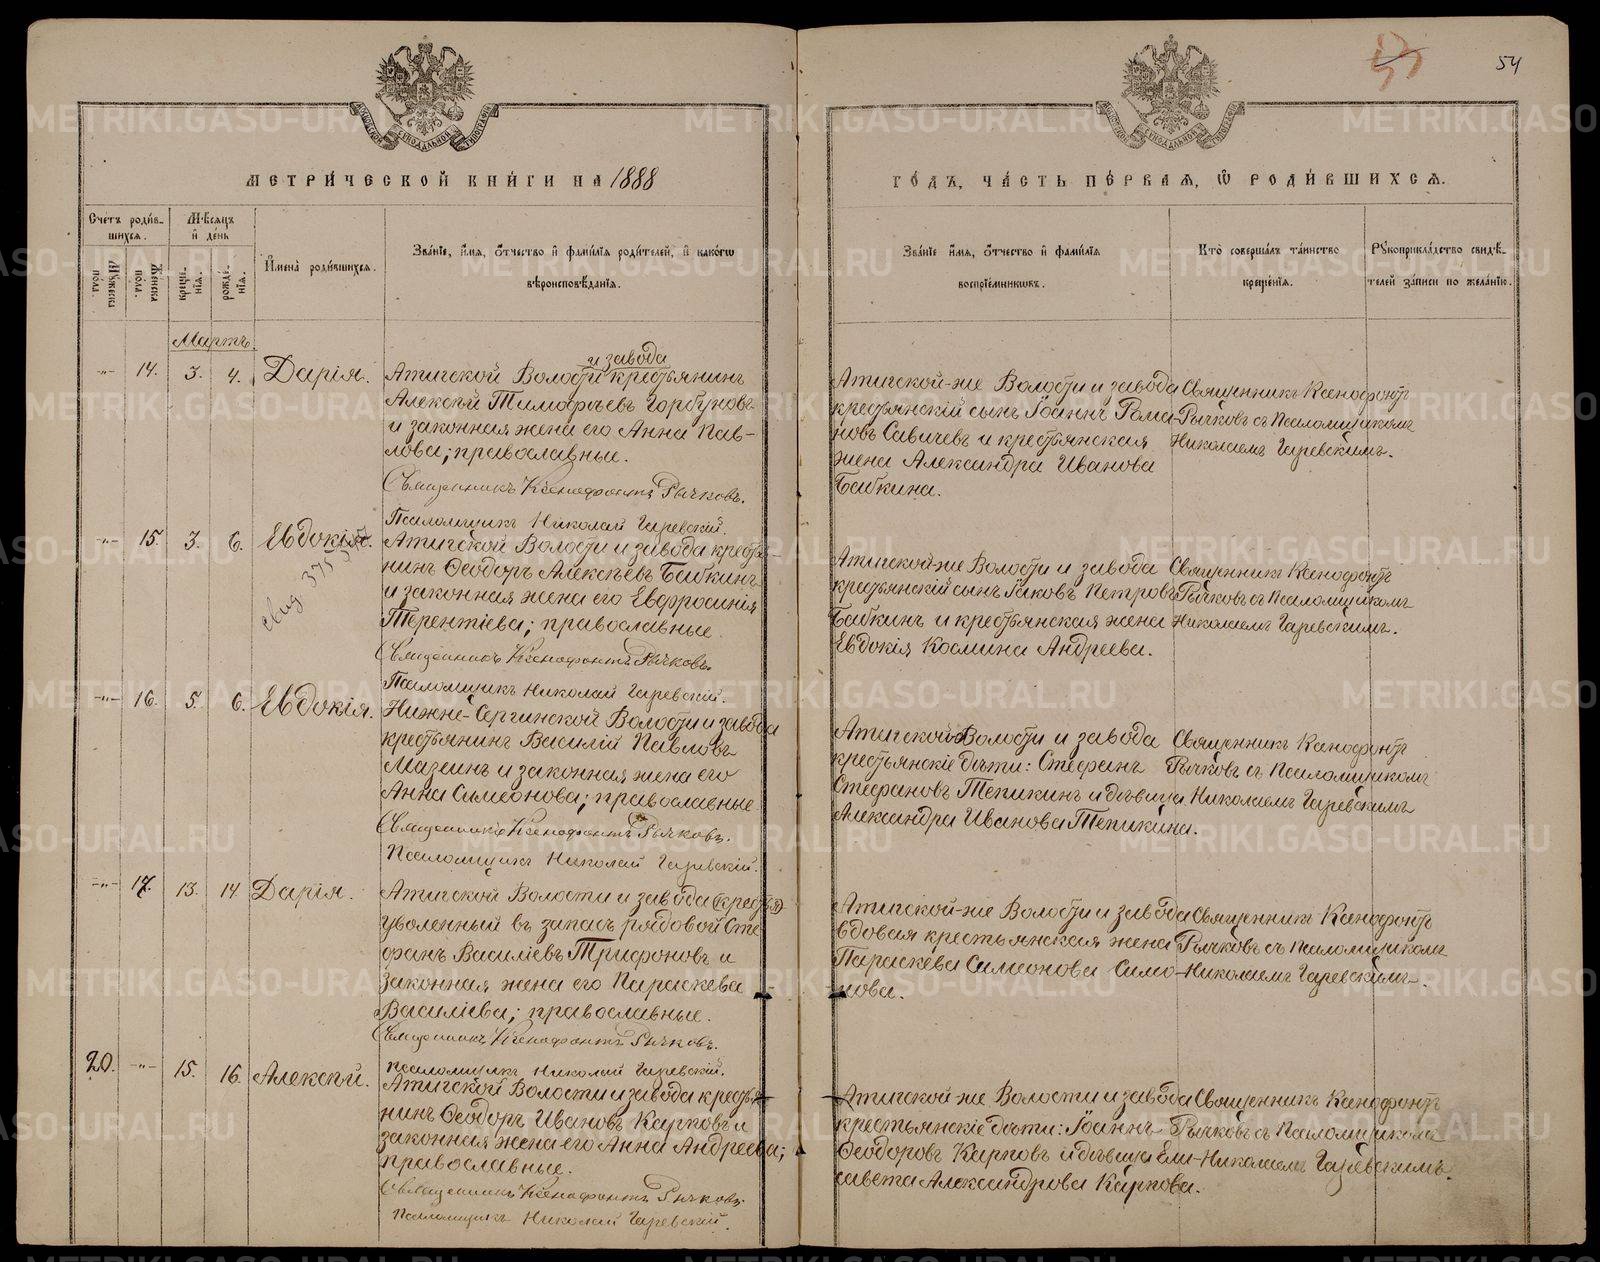 54
МЕТРИ́ЧЕСКОЙ КНИ́ГИ НА 1888
ГО́ДЪ, ЧА́СТЬ ПЕ́РВАЯ, Ѡ РОДИ́ВШИХСЯ.
Сче́тъ роди́в-
шихся.
Му́жеска по́ла.
Же́нска по́ла.
Мѣ́сяцъ
и҆ де́нь
креще́-
нія.
рожде́-
нія.
И҆мена̀ роди́вшихся.
Зва́ніе, и҆́мя, ѻ҆́тчество и҆ фами́лія роди́телей, и҆ како́гѡ
вѣроисповѣ́данія.
Зва́ніе и҆́мя, ѻ҆́тчество и҆ фами́лія
воспріе́мникѡвъ.
Кто̀ соверша́лъ та́инство
креще́нія.
Рꙋкоприкла́дство свидѣ́-
телей за́писи по жела́нію.
Мартъ.
-"- 14. 3. 4. Дарія.
и завода
Атигской Волости крестьянинъ
Алексѣй Тимофѣевъ Горбуновъ
и законная жена его Анна Пав-
лова; православные.
Священникъ Ксенофонтъ Рычковъ.
Псаломщикъ Николай Гаревскій.
Атигской-же Волости и завода
крестьянскій сынъ Іоаннъ Рома-
новъ Савичевъ и крестьянская
жена Александра Иванова
Бабкина.
Священникъ Ксенофонтъ
Рычковъ съ Псаломщикомъ
Николаемъ Гаревскимъ.
-"- 15. 3. 6. Евдокія.
свид 375
Атигской Волости и завода кресть-
нинъ Ѳеодоръ Алексѣевъ Бабкинъ
и законная жена его Евфросинія
Терентіева; православные.
Священникъ Ксенофонтъ Рычковъ.
Псаломщикъ Николай Гаревскій.
Атигской-же Волости и завода
крестьянскій сынъ Іаковъ Петровъ
Бабкинъ и крестьянская жена
Евдокія Космина Андреева.
Священникъ Ксенофонтъ
Рычковъ съ Псаломщикомъ
Николаемъ Гаревскимъ.
-"- 16. 5. 6. Евдокія.
Нижне-Сергинской Волости и завода
крестьянинъ Василій Павловъ
Мазеинъ и законная жена его
Анна Симеонова; православные
Священникъ Ксенофонтъ Рычковъ.
Псаломщикъ Николай Гаревскій.
Атигской Волости и завода
крестьянскіе дѣти: Стефанъ
Стефановъ Тепикинъ и дѣвица
Александра Иванова Тепикина.
Священникъ Ксенофонтъ
Рычковъ съ Псаломщикомъ
Николаемъ Гаревскимъ
-"- 17. 13. 14 Дарія.
Атигской Волости и завода (крестья)
уволенный въ запасъ рядовой Сте
фанъ Василіевъ Трифоновъ и
законная жена его Параскева
Василіева; православные.
Священникъ Ксенофонтъ Рычковъ.
Псаломщикъ Николай Гаревскій.
Атигской-же Волости и завода
вдовая крестьянская жена
Параскева Симеонова Симо-
нова.
Священникъ Ксенофонтъ
Рычковъ съ Псаломщикомъ
Николаемъ Гаревскимъ.
20. -"- 15. 16. Алексѣй.
Атигской Волости и завода крестья
нинъ Ѳеодоръ Ивановъ Карповъ и
законная жена его Анна Андреева;
православные.
Священникъ Ксенофонтъ Рычковъ.
Псаломщикъ Николай Гаревскій.
Атигской-же Волости и завода
крестьянскіе дѣти: Іоаннъ
Ѳеодоровъ Карповъ и дѣвица Ели-
савета Александрова Карпова.
Священникъ Ксенофонтъ
Рычковъ съ Псаломщикомъ
Николаемъ Гаревскимъ.
METRIKI.GASO-URAL.RU